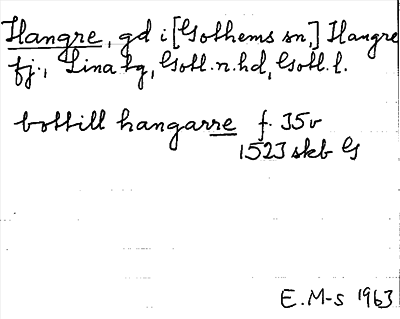 Hangre, gd i [Gothems sn,] Hangre
fj., Lina tg, Gotl. n. hd, Gotl. l.
bottill hangarre f. 35v
1523 skb G
E. M-s 1963